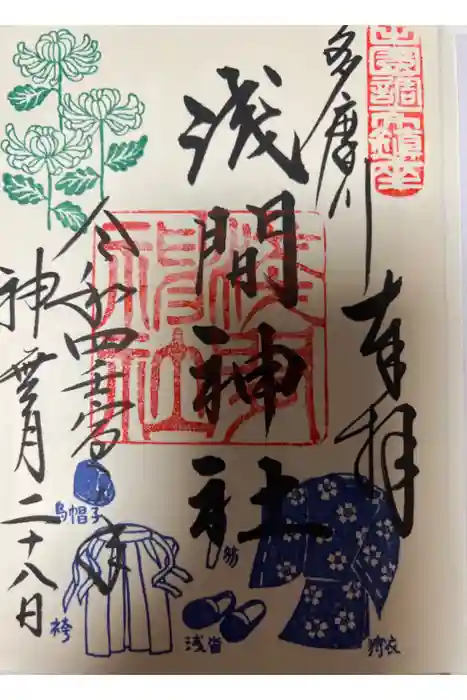 多摩川
奉拝
浅間神社
令和四壬寅年
神無月二十八日
浅間
神社
烏帽子
袴
笏
浅沓
狩衣